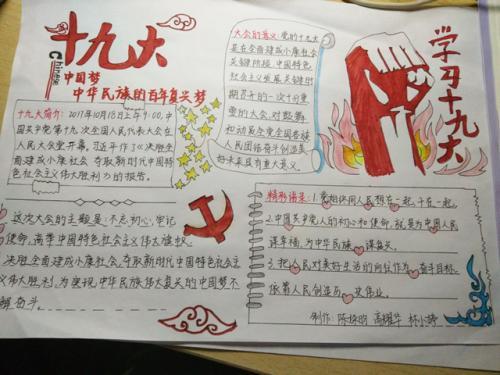 十九大
Chinese
中国梦
中华民族的百年复兴梦
十九大简介:2017年10月18日上午9:00,中
国共产党第十九次全国人民代表大会在
人民大会堂开幕。习近平作了《决胜全
面建成小康社会 夺取新时代中国特
色社会主义伟大胜利》的报告。
大会的意义:党的十九大
是在全面建成小康社会
关键阶段,中国特色
社会主义发展关键时
期召开的一次十分重
要的大会,对鼓舞
和动员全党全国各族
人民团结奋斗创造美
好未来具有重大意义。
学习十九大
这次大会的主题是:不忘初心,牢记
使命,高举中国特色社会主义伟大旗帜,
决胜全面建成小康社会,夺取新时代中国特色社会主
义伟大胜利,为实现中华民族伟大复兴的中国梦不
懈奋斗。
精彩语录:1.党相信同人民想在一起,干在一起。
2.中国共产党人的初心和使命,就是为中国人民
谋幸福,为中华民族谋复兴。
3.把人民对美好生活的向往作为奋斗目标,
依靠人民创造历史伟业。
制作:陈 高耀华 林小婷